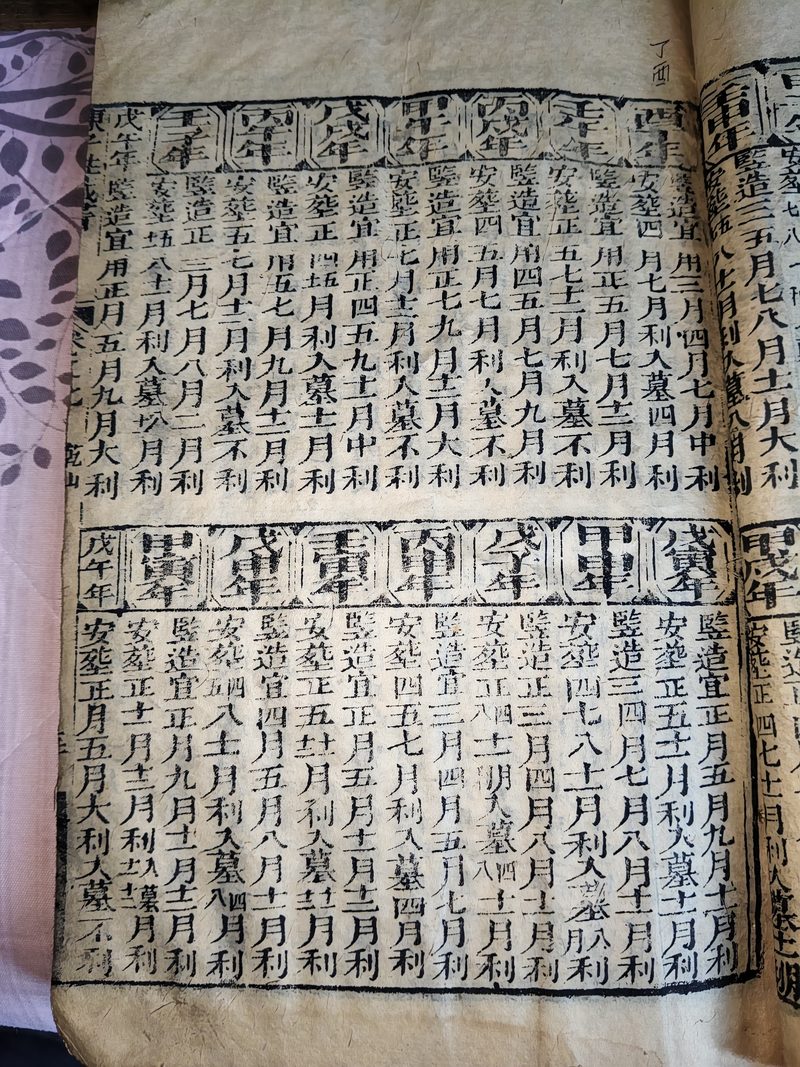 丁酉
酉年
竪造宜用三月四月七月中利
安葬四月七月利入墓四月利
壬午年
竪造宜用正五月七月十二月利
安葬正五七十二月利入墓不利
丙戌年
竪造宜用四五月七月九月利
安葬四五月七月利入墓不利
甲午年
竪造宜用正七九月十二月大利
安葬正七月十二月利入墓不利
戊戌年
竪造宜用正四五九十二月中利
安葬正四五月利入墓十二月利
丙午年
竪造宜用五七月九月十二月利
安葬五七月十二月利入墓不利
壬子年
竪造正三月七月八月二月利
安葬四五八十二月利入墓四八月利
戊午年
竪造宜用正月五月九月大利
乾山
戊寅年
竪造宜正月五月九月十二月利
安葬正五十二月利入墓十二月利
甲申年
竪造三四月七月八月十二月利
安葬四七八十二月利入墓八月利
戊子年
竪造正三月四月八月十二月利
安葬正四八十二月利入墓四八十二月利
丙申年
竪造宜三月四月五月七月利
安葬四五七月利入墓四月利
壬寅年
竪造宜正月五月十一月十二月利
安葬正五十一十二月利入墓十一十二月利
戊申年
竪造宜四月五月八月十二月利
安葬四五八十二月利入墓四八月利
甲寅年
竪造宜正月九月十一月十二月利
安葬正十一月十二月利入墓十一十二月利
戊午年
安葬正月五月大利入墓不利
壬寅年
竪造三五月七八月十二月大利
甲戌年